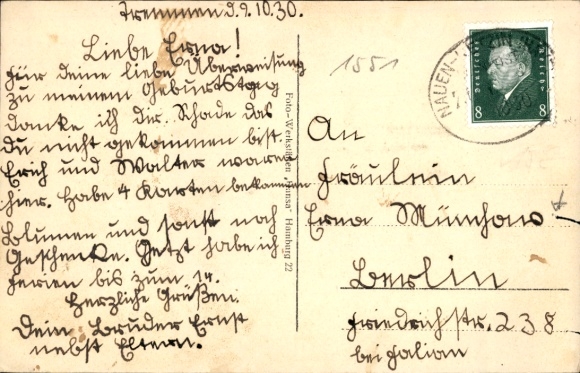 Tremmen d. 9.10.30.
Liebe Erna!
Für deine liebe Überweisung
zu meinem Geburtstag
danke ich dir. Schade das
du nicht gekommen bist.
Erich und Walter waren
hier. Habe 4 Karten bekommen
Blumen und sonst noch
Geschenke. Jetzt habe ich
Ferien bis zum 14.
Herzliche Grüßen.
Dein Bruder Ernst
nebst Eltern.
Foto-Werkstätten "Hansa" Hamburg 22
1551
Deutsches Reich
8 8
NAUEN-
An
Fräulein
Erna Münchow
Berlin
Friedrichstr. 238
bei Galian